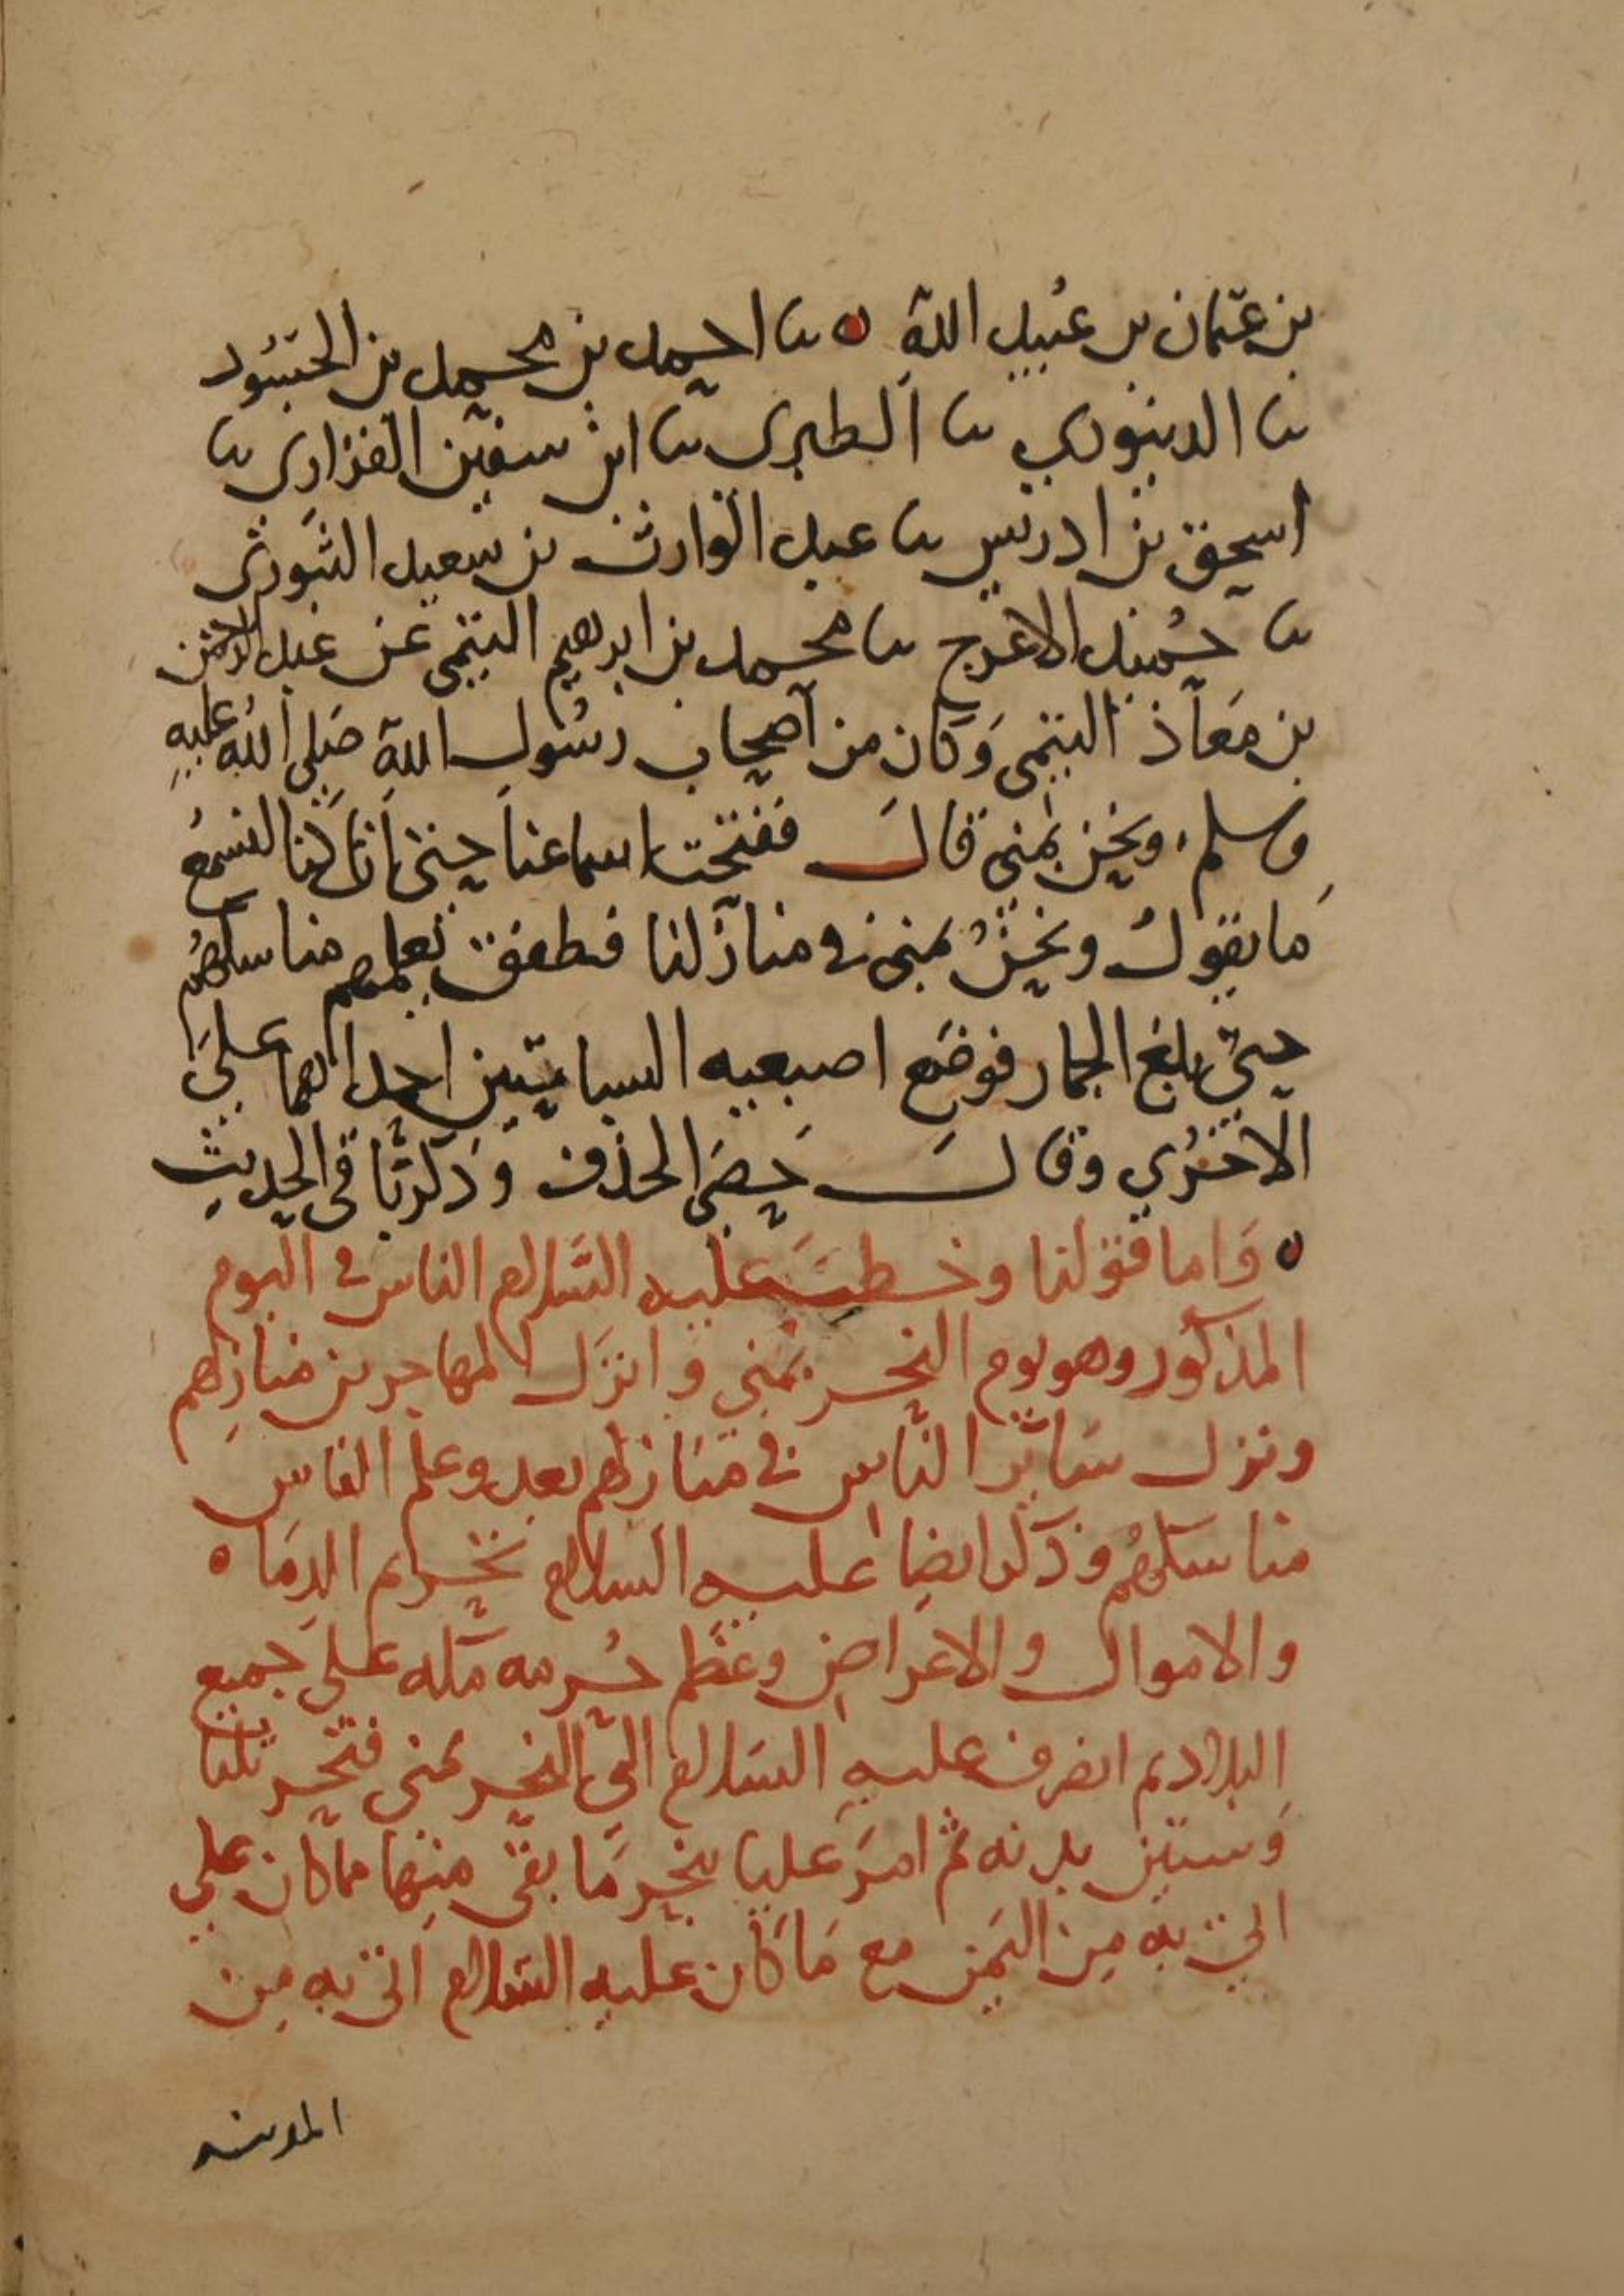 بن عثمان بن عبيد الله ثنا احمد بن محمد بن الجسور
ثنا الدينوري ثنا الطبري ثنا ابن سفين الفزاري ثنا
اسحق بن ادريس ثنا عبد الوارث بن سعيد الثوري
ثنا حميد الاعرج ثنا محمد بن ابرهيم التيمي عن عبد الرحمن
بن معاذ التيمي وكان من اصحاب رسول الله صلى الله عليه
وسلم ونحن بمنى قال ففتحت اسماعنا حتى انا كنا لنسمع
ما يقول ونحن بمنى في منازلنا فطفق يعلمهم مناسكهم
حتى بلغ الجمار فوضع اصبعيه السبابتين احداهما على
الاخرى وقال حصى الخذف وذكر باقي الحديث
واما قولنا وخطب عليه السلام الناس في اليوم
المذكور وهو يوم النحر بمنى وانزل المهاجرين منازلهم
ونزل سائر الناس في منازلهم بعد وعلم الناس
مناسكهم وذكر ايضا عليه السلام تحريم الدماء
والاموال والاعراض وعظم حرمه مكه على جميع
البلاد ثم انصرف عليه السلام الى النحر بمنى فنحر ثلثا
وستين بدنه ثم امر عليا بنحر ما بقي منها مما كان علي
اتى به من اليمن مع ما كان عليه السلام اتى به من
المدينه